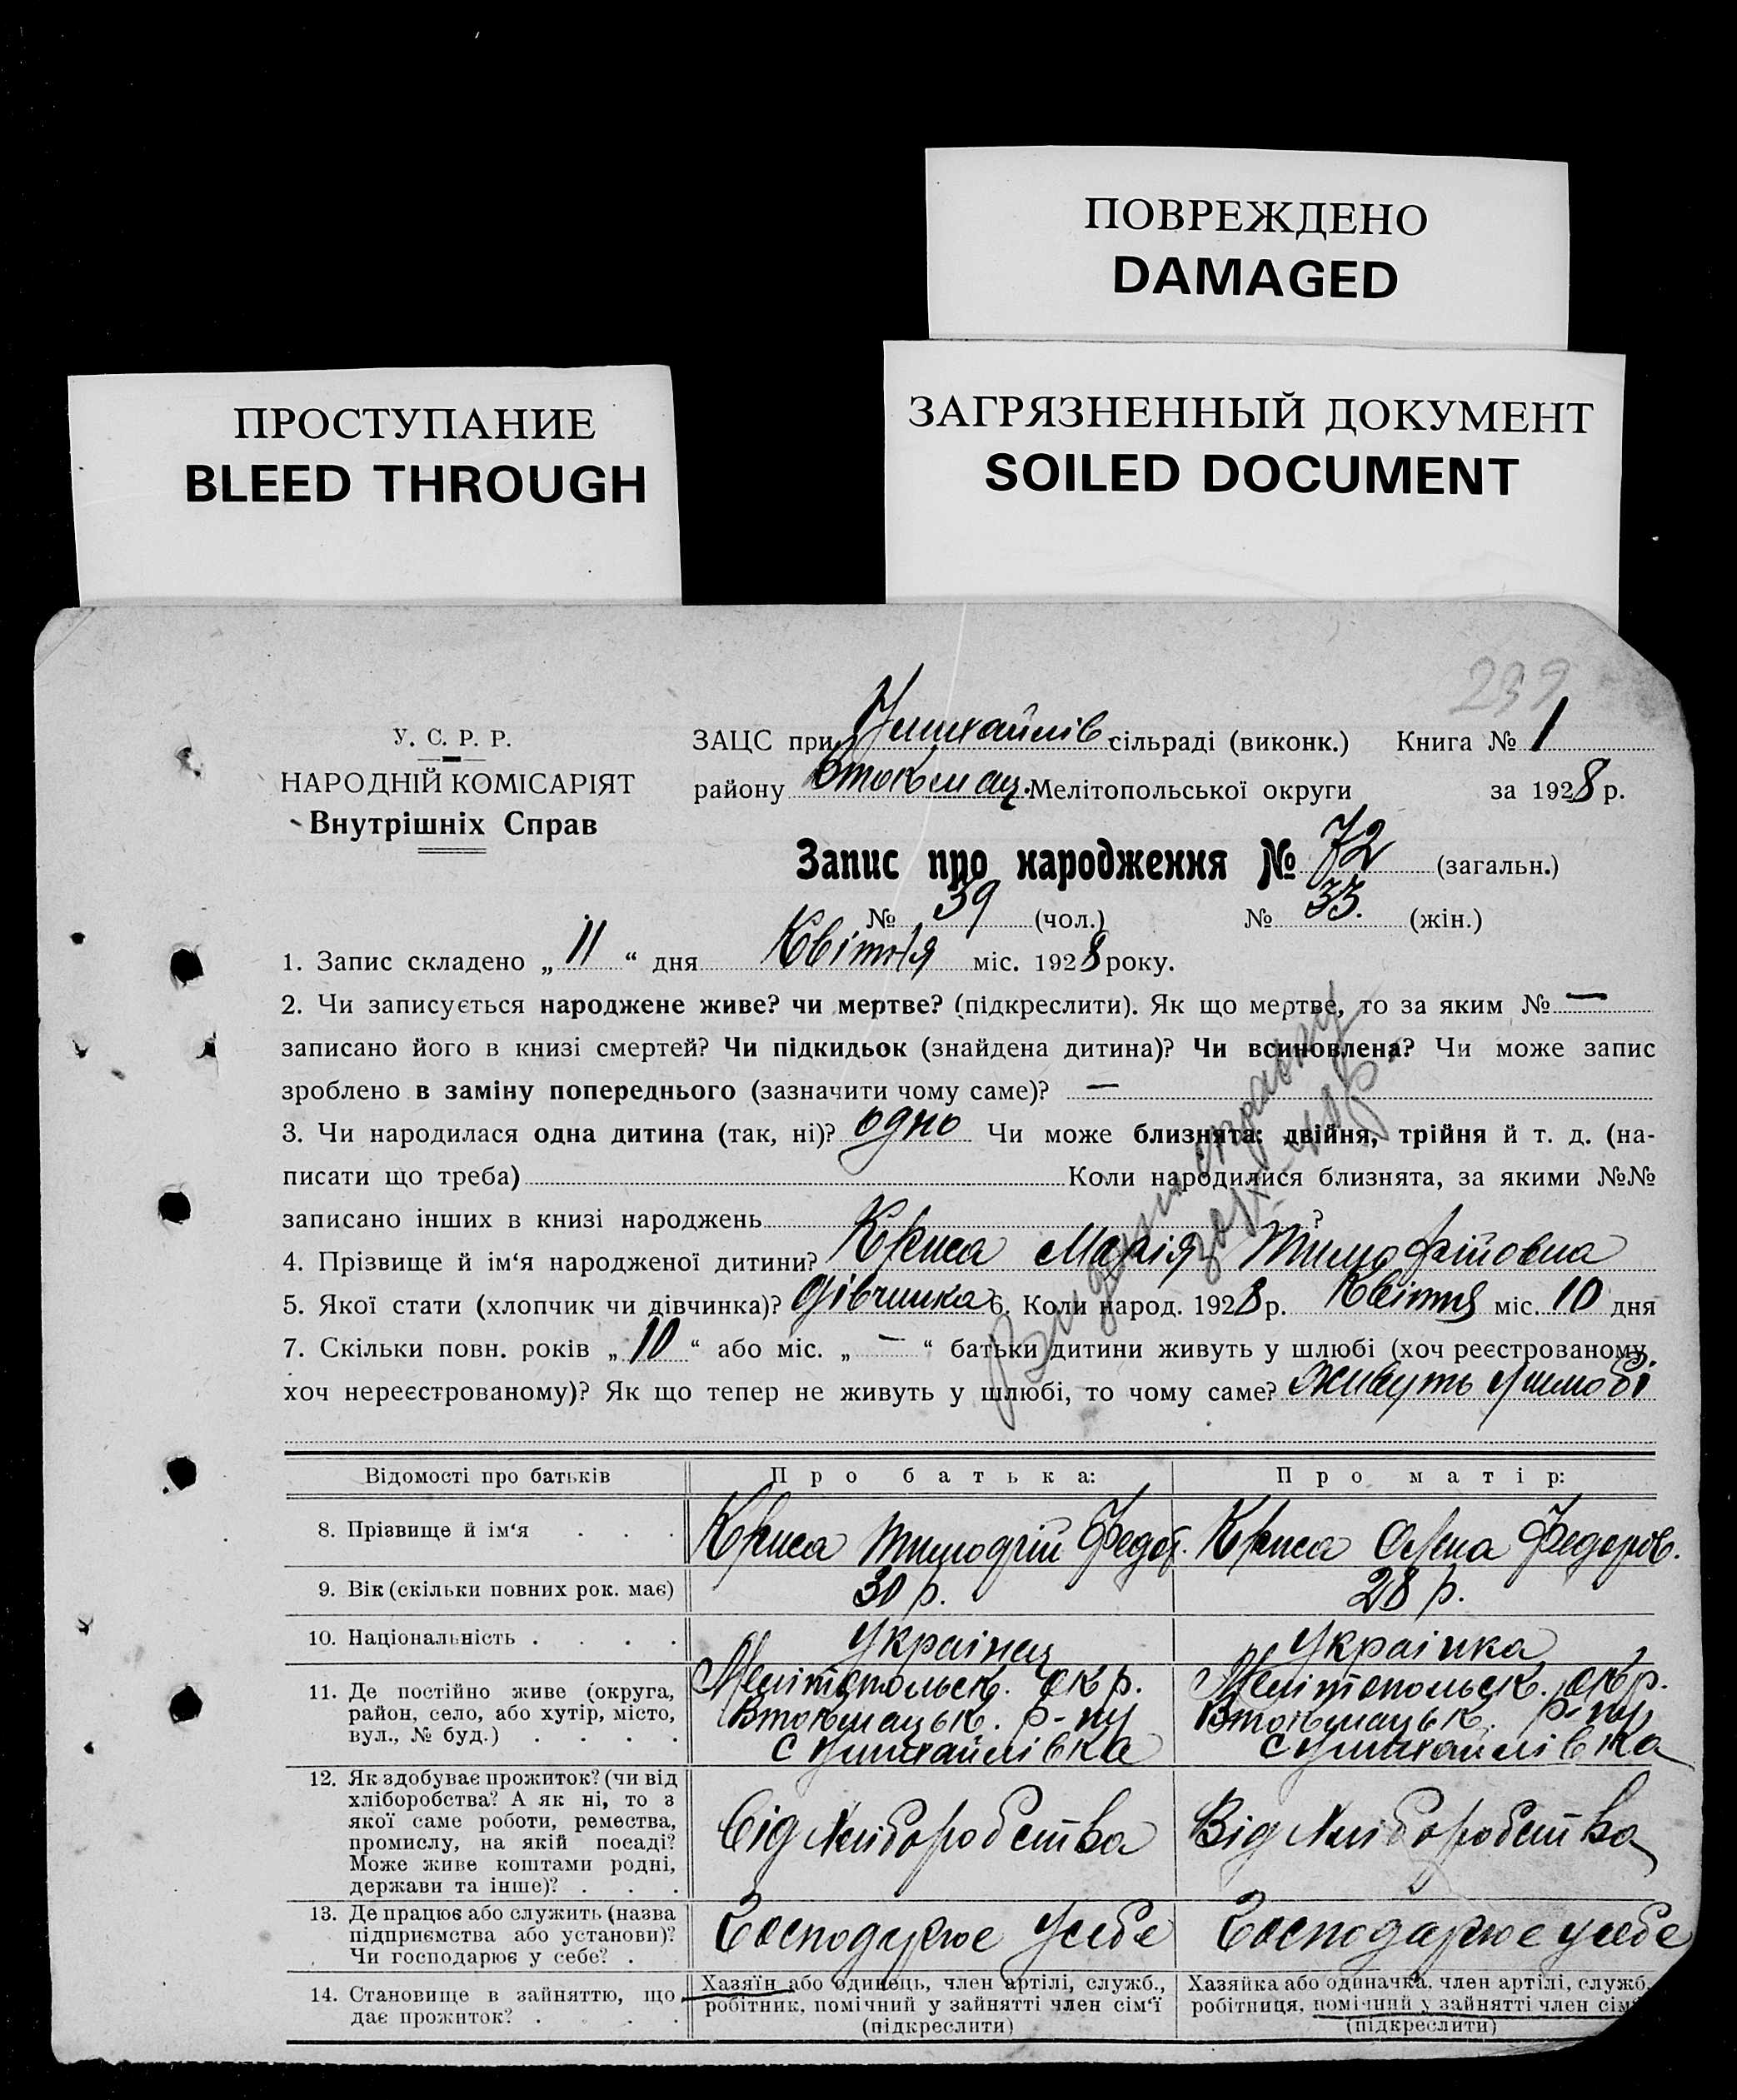 ПОВРЕЖДЕНО
DAMAGED
ПРОСТУПАНИЕ
BLEED THROUGH
ЗАГРЯЗНЕННЫЙ ДОКУМЕНТ
SOILED DOCUMENT
239
У. С. Р. Р.
НАРОДНІЙ КОМІСАРІЯТ
Внутрішніх Справ
ЗАЦС при сільраді (виконк.) Книга № 1
району Втокмац. Мелітопольської округи за 1928 р.
Запис про народження № 72 (загальн.)
№ 39 (чол.) № 33. (жін.)
1. Запис складено „ 11 “ дня Квітня міс. 1928 року.
2. Чи записується народжене живе? чи мертве? (підкреслити). Як що мертве, то за яким № —
записано його в книзі смертей? Чи підкидьок (знайдена дитина)? Чи всиновлена? Чи може запис
зроблено в заміну попереднього (зазначити чому саме)? —
3. Чи народилася одна дитина (так, ні)? одно Чи може близнята: двійня, трійня й т. д. (на-
писати що треба) Коли народилися близнята, за якими №№
записано інших в книзі народжень ?
4. Прізвище й ім‘я народженої дитини? Криса Марія Тимофійовна
5. Якої стати (хлопчик чи дівчинка)? Дівчинка 6. Коли народ. 1928 р. Квітня міс. 10 дня
7. Скільки повн. років „ 10 “ або міс. „ — “ батьки дитини живуть у шлюбі (хоч реєстрованому,
хоч нереєстрованому)? Як що тепер не живуть у шлюбі, то чому саме? живуть у шлюбі
Відомості про батьків Про батька: Про матір:
8. Прізвище й ім‘я . . . Криса Тимофій Федор. Криса Олена Федоров.
9. Вік (скільки повних рок. має) 30 р. 28 р.
10. Національність . . . . Українец Українка
11. Де постійно живе (округа, Мелітопольськ. окр. Мелітопольськ. окр.
район, село, або хутір, місто, Втокмацьк. р-ну Втокмацьк. р-ну
вул., № буд.) . . . .
12. Як здобуває прожиток? (чи від
хліборобства? А як ні, то з
якої саме роботи, ремества,
промислу, на якій посаді? Від хліборобства Від хліборобства
Може живе коштами родні,
держави та інше)? . . .
13. Де працює або служить (назва
підприємства або установи)? Господарює у себе Господарює у себе
Чи господарює у себе? .
14. Становище в зайняттю, що Хазяїн або одинець, член артілі, служб., Хазяйка або одиначка, член артілі, служб.
дає прожиток? . . . . робітник, помічний у зайнятті член сім‘ї робітниця, помічний у зайнятті член сім‘
(підкреслити) (підкреслити)